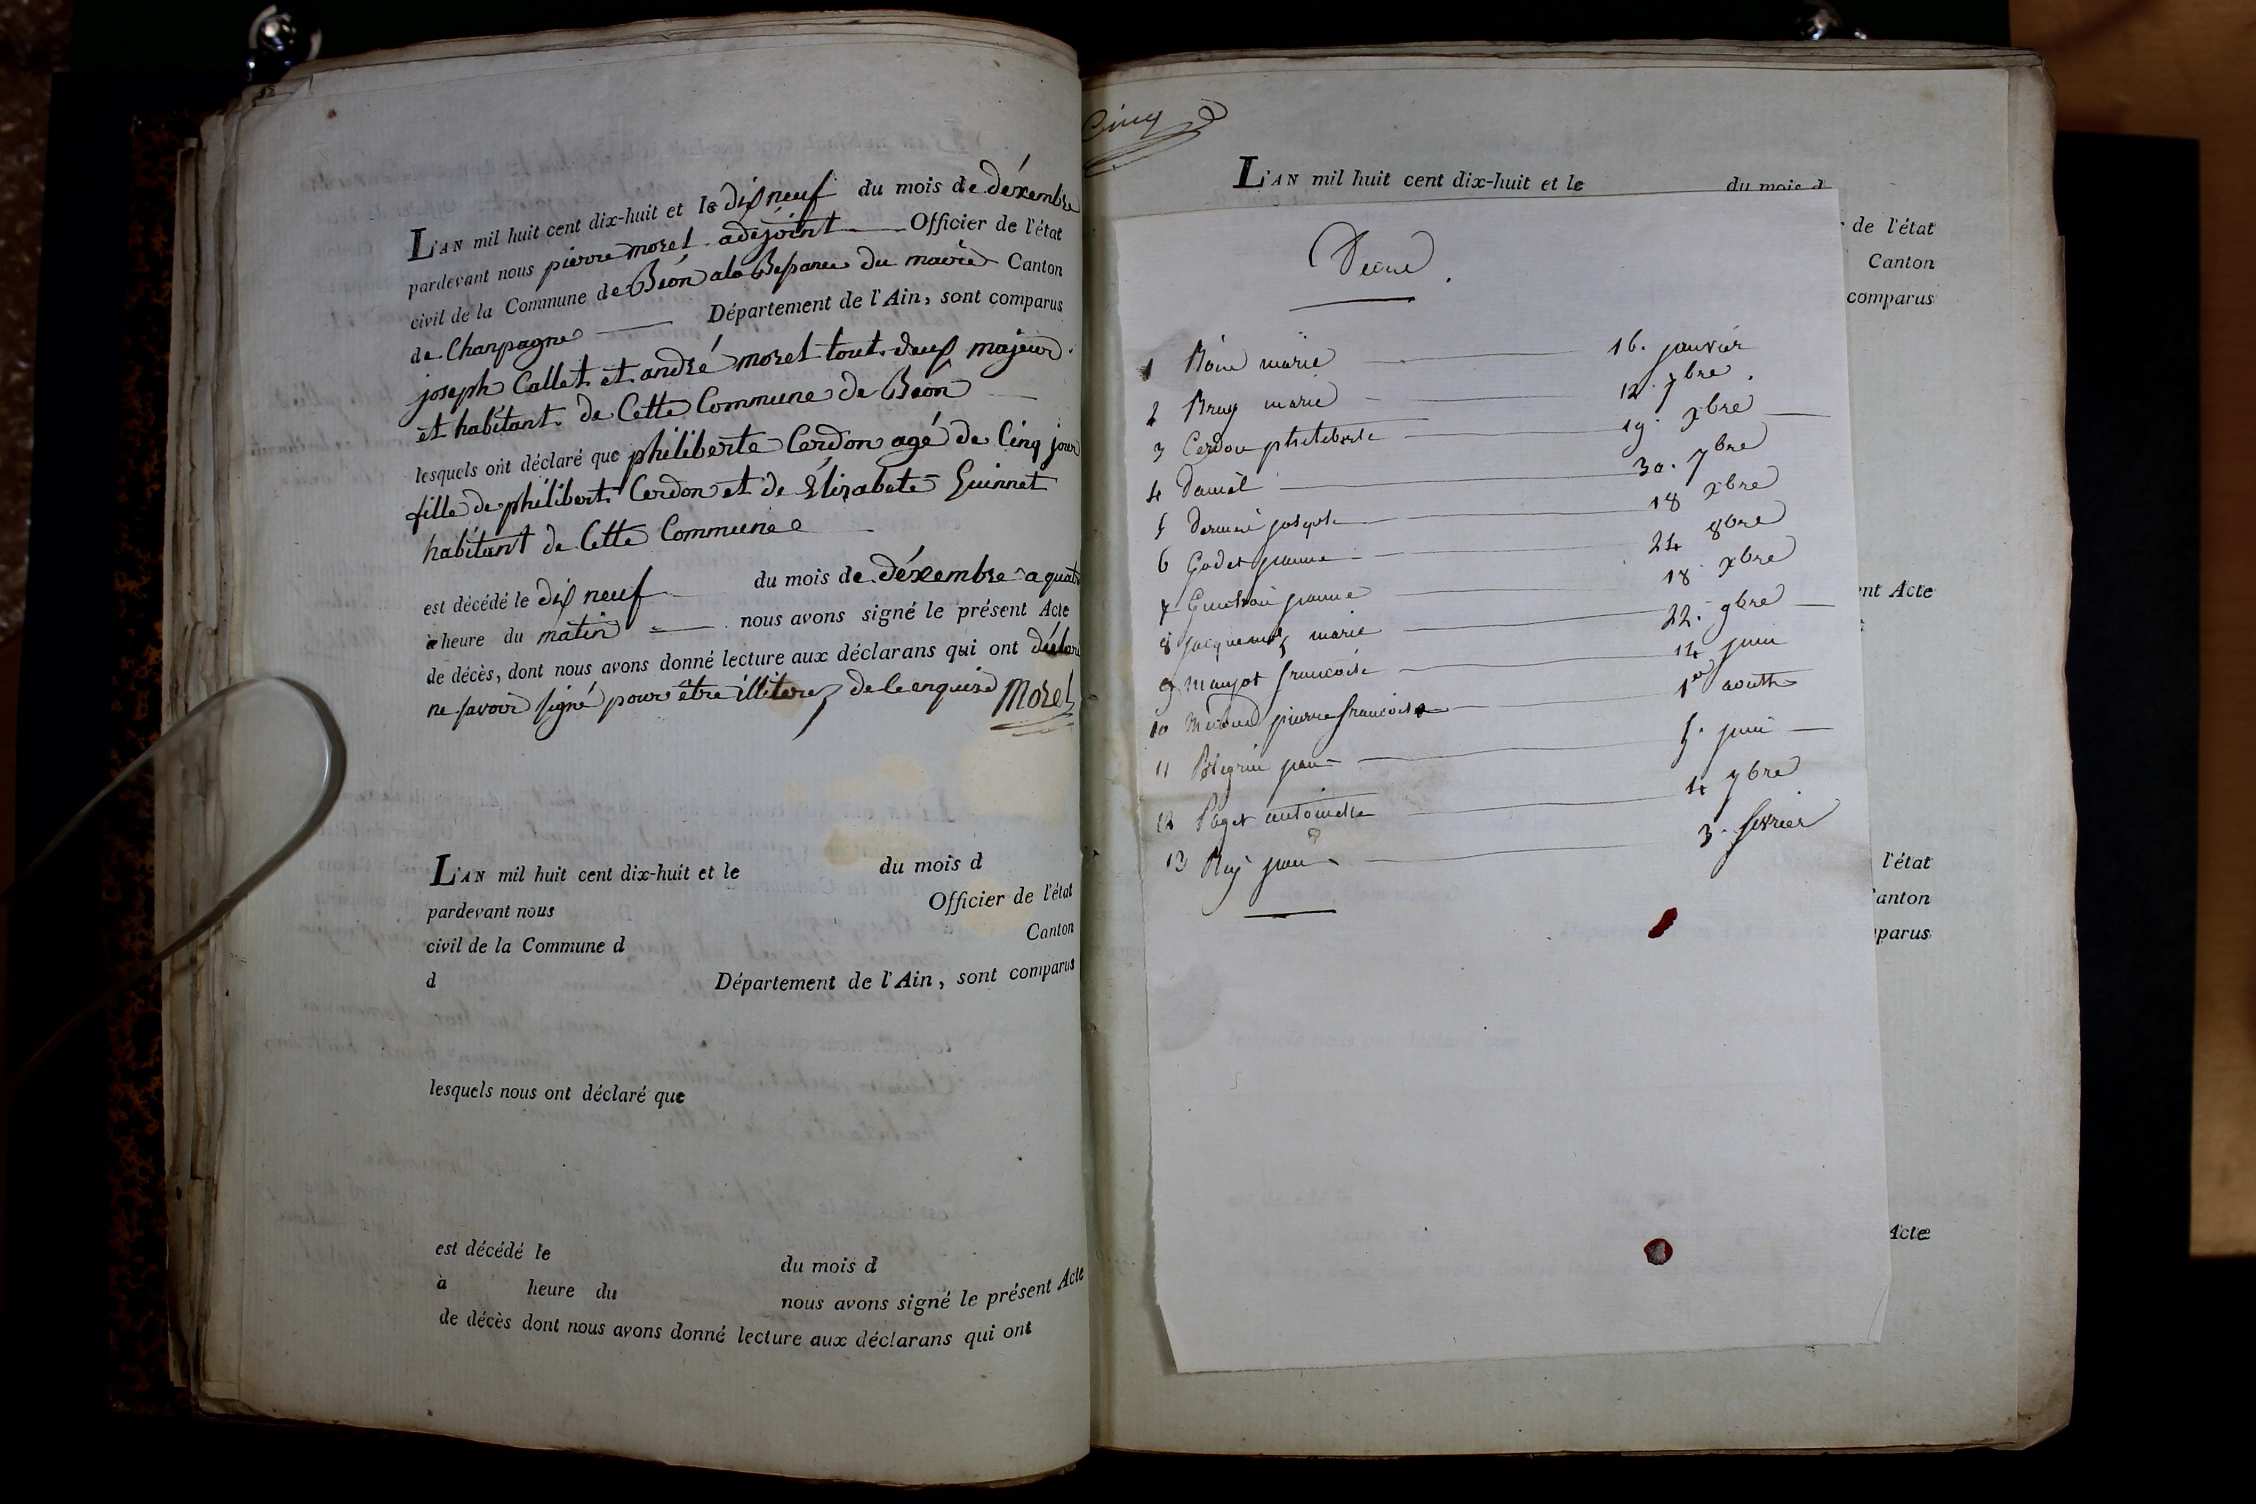 L'AN mil huit cent dix-huit et le dix neuf du mois de déxembre
pardevant nous pierre morel adejoint Officier de l'état
civil de la Commune de Béon ala Besance du maire Canton
de Chanpagne Département de l'Ain, sont comparus
joseph Callet et andré morel tout deux majeur
et habitant de Cette Commune de Béon
lesquels ont déclaré que philiberte Cerdon agé de Cinq jour
fille de philibert Cerdon et de Élizabete Guinnet
habitant de Cette Commune
est décédé le dix neuf du mois de déxembre a quatre
à heure du matin nous avons signé le présent Acte
de décès, dont nous avons donné lecture aux déclarans qui ont déclaré
ne savoir signé pour être illiteré de le enquise Morel
L'AN mil huit cent dix-huit et le du mois d
pardevant nous Officier de l'état
civil de la Commune d Canton
d Département de l'Ain, sont comparus
lesquels nous ont déclaré que
est décédé le du mois d
à heure du nous avons signé le présent Acte
de décès dont nous avons donné lecture aux déclarans qui ont
Cinq
L'AN mil huit cent dix-huit et le du mois d
de l'état
Canton
comparus
1 marie 16. janvier
2 Bruy marie 12. 7bre.
3 Cerdon philiberte 19. xbre
4 Daniel 30. 7bre
5 joseph 18 xbre
6 Godet jeanne 24 8bre
7 jeanne 18 xbre
8 Jacquemet marie 22. 9bre
9 Manjot francoise 14 juin
10 pierre francoise 1er aoust
11 Pelegrin jean 5. juin
12 Poget antoinette 4 7bre
13 Rey jean 3. fevrier
nt Acte
l'état
anton
parus
Acte